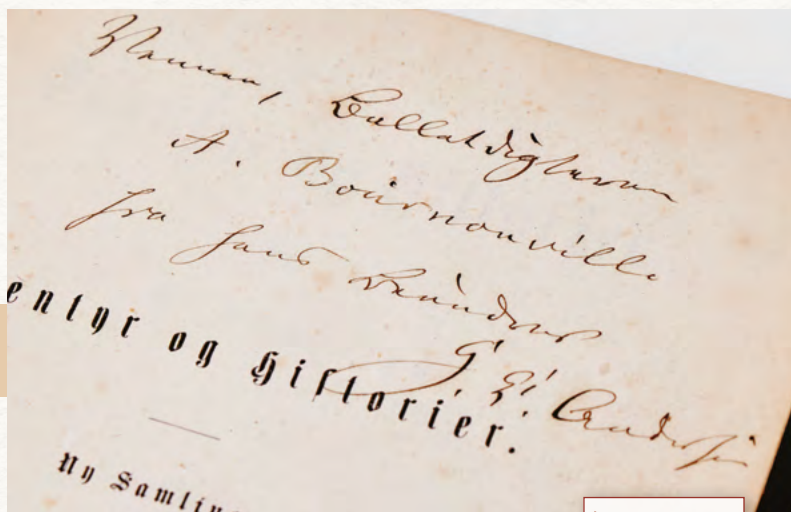 Vennen, Balletdigteren
A. Bournonville
fra hans Beundrer
H. C. Andersen
entyr og Historier.
Ny Samling